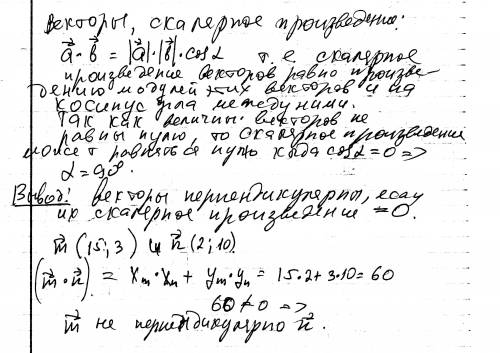 Векторы, скалярное произведение:
a⃗ · b⃗ = |a⃗|·|b⃗|·cosα т.е скалярное
произведение векторов равно произве-
дению модулей этих векторов и на
косинус угла между ними.
Так как величины векторов не
равны нулю, то скалярное произведение
может равняться нулю когда cosα=0 =>
α = 90°.
Вывод: Векторы перпендикулярны, если
их скалярное произведение =0.
m⃗ (15; 3) и n⃗ (2; 10).
(m⃗ · n⃗) = xm · xn + ym · yn = 15·2 + 3·10 = 60
60 ≠ 0 =>
m⃗ не перпендикулярно n⃗.